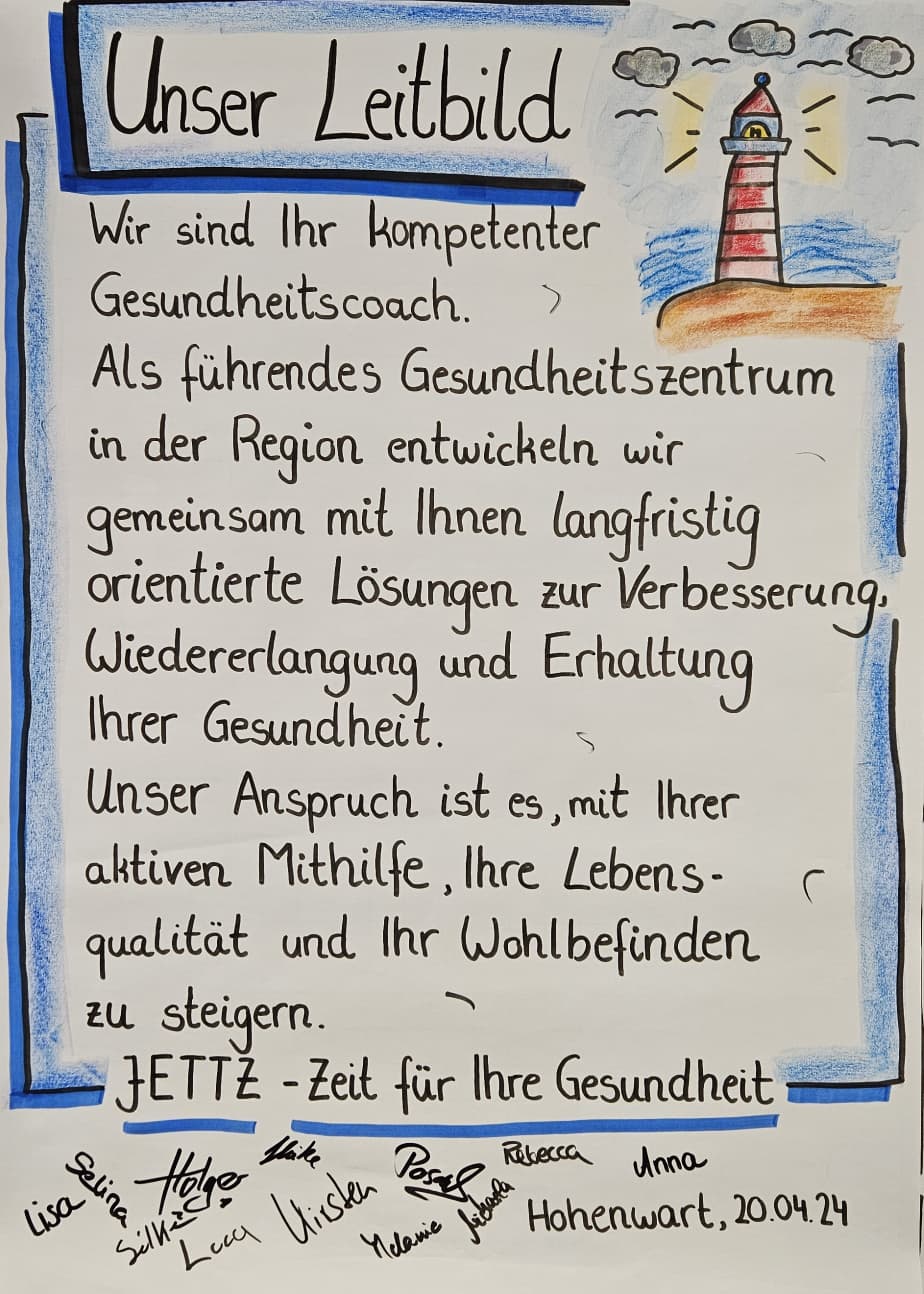 Unser Leitbild
Wir sind Ihr kompetenter
Gesundheitscoach.
Als führendes Gesundheitszentrum
in der Region entwickeln wir
gemeinsam mit Ihnen langfristig
orientierte Lösungen zur Verbesserung,
Wiedererlangung und Erhaltung
Ihrer Gesundheit.
Unser Anspruch ist es, mit Ihrer
aktiven Mithilfe, Ihre Lebens-
qualität und Ihr Wohlbefinden
zu steigern.
JETTZ - Zeit für Ihre Gesundheit
Lisa Selina Holger Rebecca Anna
Silke Luca Kirsten Melanie
Hohenwart, 20.04.24